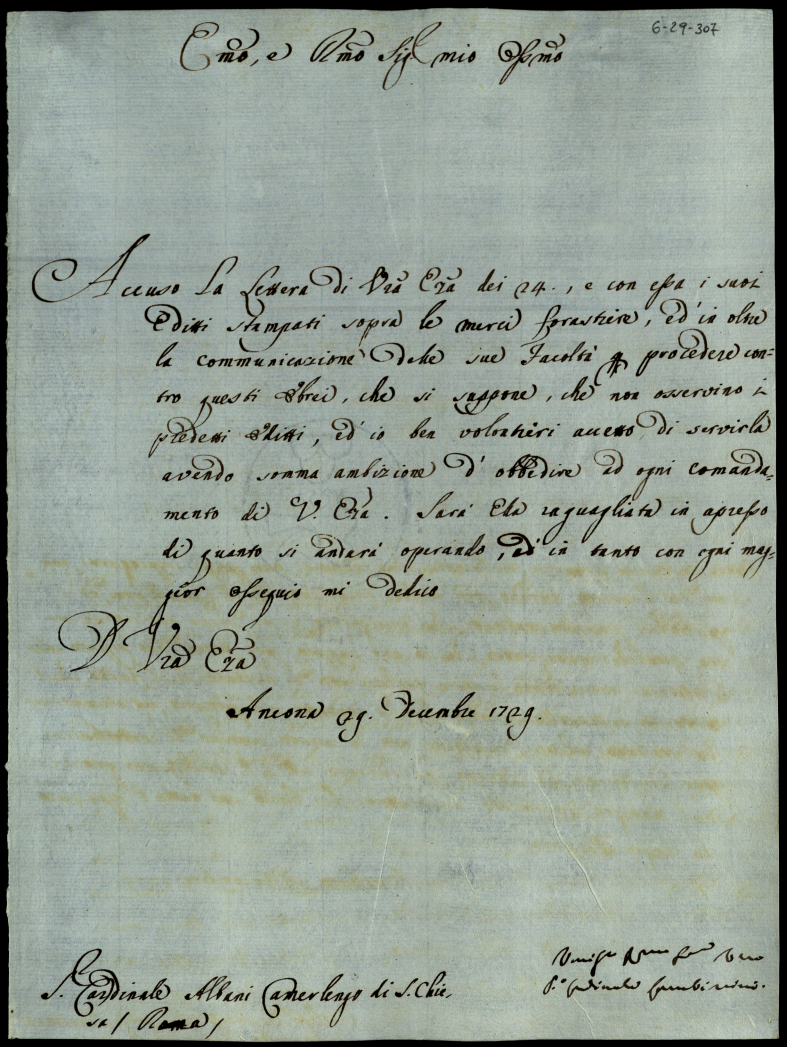 6-29-307
Emo, e Rmo Sig mio Ossmo
Accuso la Lettera di Vra Eza dei 24., e con essa i suoi
Editti stampati sopra le merci forastiere, ed' in oltre
la communicazione delle sue Facoltà p procedere con=
tro questi Ebrei, che si suppone, che non osservino i
predetti Editti, ed' io ben volontieri accetto di servirla
avendo somma ambizione d' obbedire ad ogni comanda=
mento di V. Eza. Sarà Ella raguagliata in apresso
di quanto si andarà operando, ed' in tanto con ogni mag=
gior ossequio mi dedico
D Vra Eza
Ancona 29. Decembre 1729.
S. Cardinale Albani Camerlengo di S. Chie=
sa / Roma /